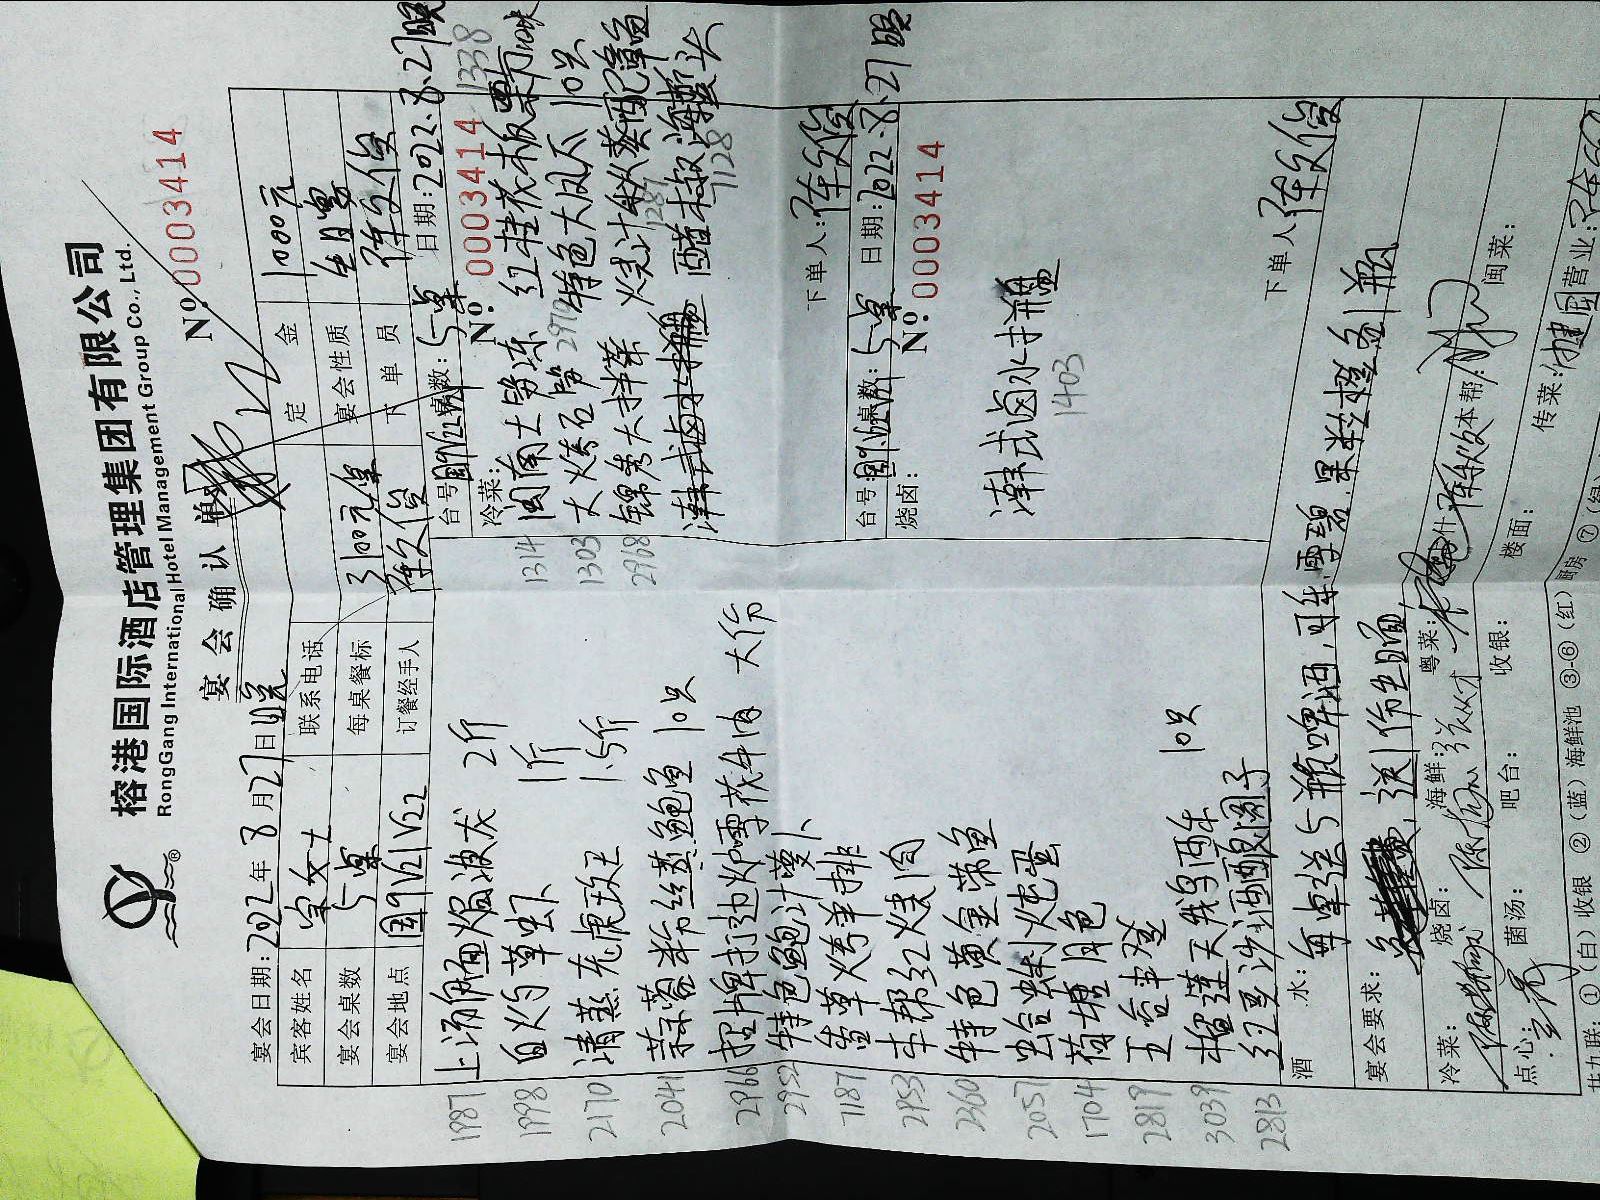 榕港国际酒店管理集团有限公司
RongGang International Hotel Management Group Co., Ltd.
宴会确认单
No. 0003414
宴会日期: 2022 年 8 月 27 日 晚
宾客姓名 宋女士 联系电话 定金 1000元
宴会桌数 5桌 每桌餐标 3100元/桌 宴会性质 生日宴
宴会地点 国9V21V22 订餐经手人 陈文俊 下单员 陈文俊
1987 上汤焗波龙 2斤
1998 白灼草虾 1斤
2170 清蒸龙虎斑 1.5斤
2041 蒜蓉粉丝蒸鲍鱼 10只
2966 招牌打边炉雪花牛肉 大份
2952 特色鲍汁萝卜
7187 萱草烤羊排
2953 本帮红烧肉
2360 特色黄金带鱼
2057 蛤蜊炖蛋
1704 荷塘月色
2819 五谷丰登
3039 榴莲天鹅酥 10只
2813 红豆沙酒酿圆子
台号: 国9V21V22 桌数: 5桌 日期: 2022.8.27晚
冷菜: No. 0003414
1314 闽南土笋冻
红桂花木板栗 10块 1338
1303 大烤石笋
2979 特色大凤爪 10只
2968 锦秀大拌菜
烧汁秋葵配章鱼
1287
漳式卤水拼盘
醋椒海蜇头
7128
下单人: 陈文俊
台号: 国9V21V22 桌数: 5桌 日期: 2022.8.27晚
烧卤: No. 0003414
漳式卤水拼盘
1403
下单人 陈文俊
酒水: 每桌送5瓶啤酒,可乐,雪碧,果粒橙各1瓶
宴会要求: 送1份生日面
冷菜: 烧卤: 海鲜: 粤菜: 本帮: 闽菜:
点心: 菌汤: 吧台: 收银: 楼面: 传菜: 营业:
①(白)收银 ②(蓝)海鲜池 ③-⑥(红)厨房 ⑦(绿)